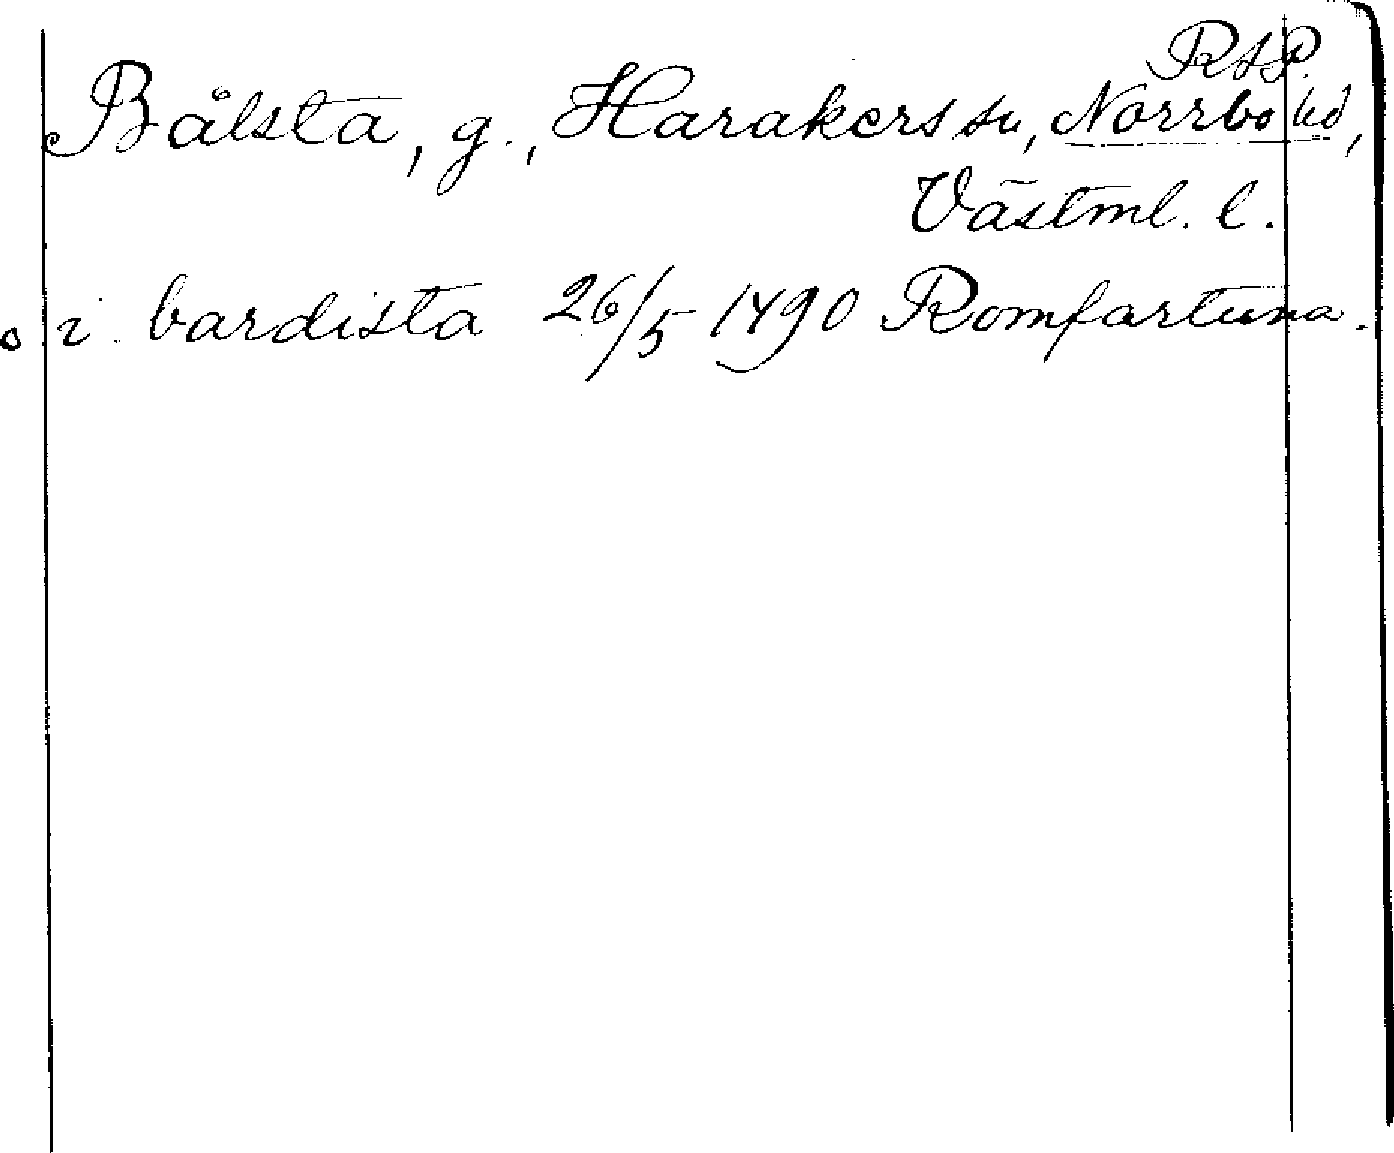 RAP.
Bålsta, g., Harakers sn, Norrbo hd,
Västml. l.
i bardista 26/5 1490 Romfartuna.